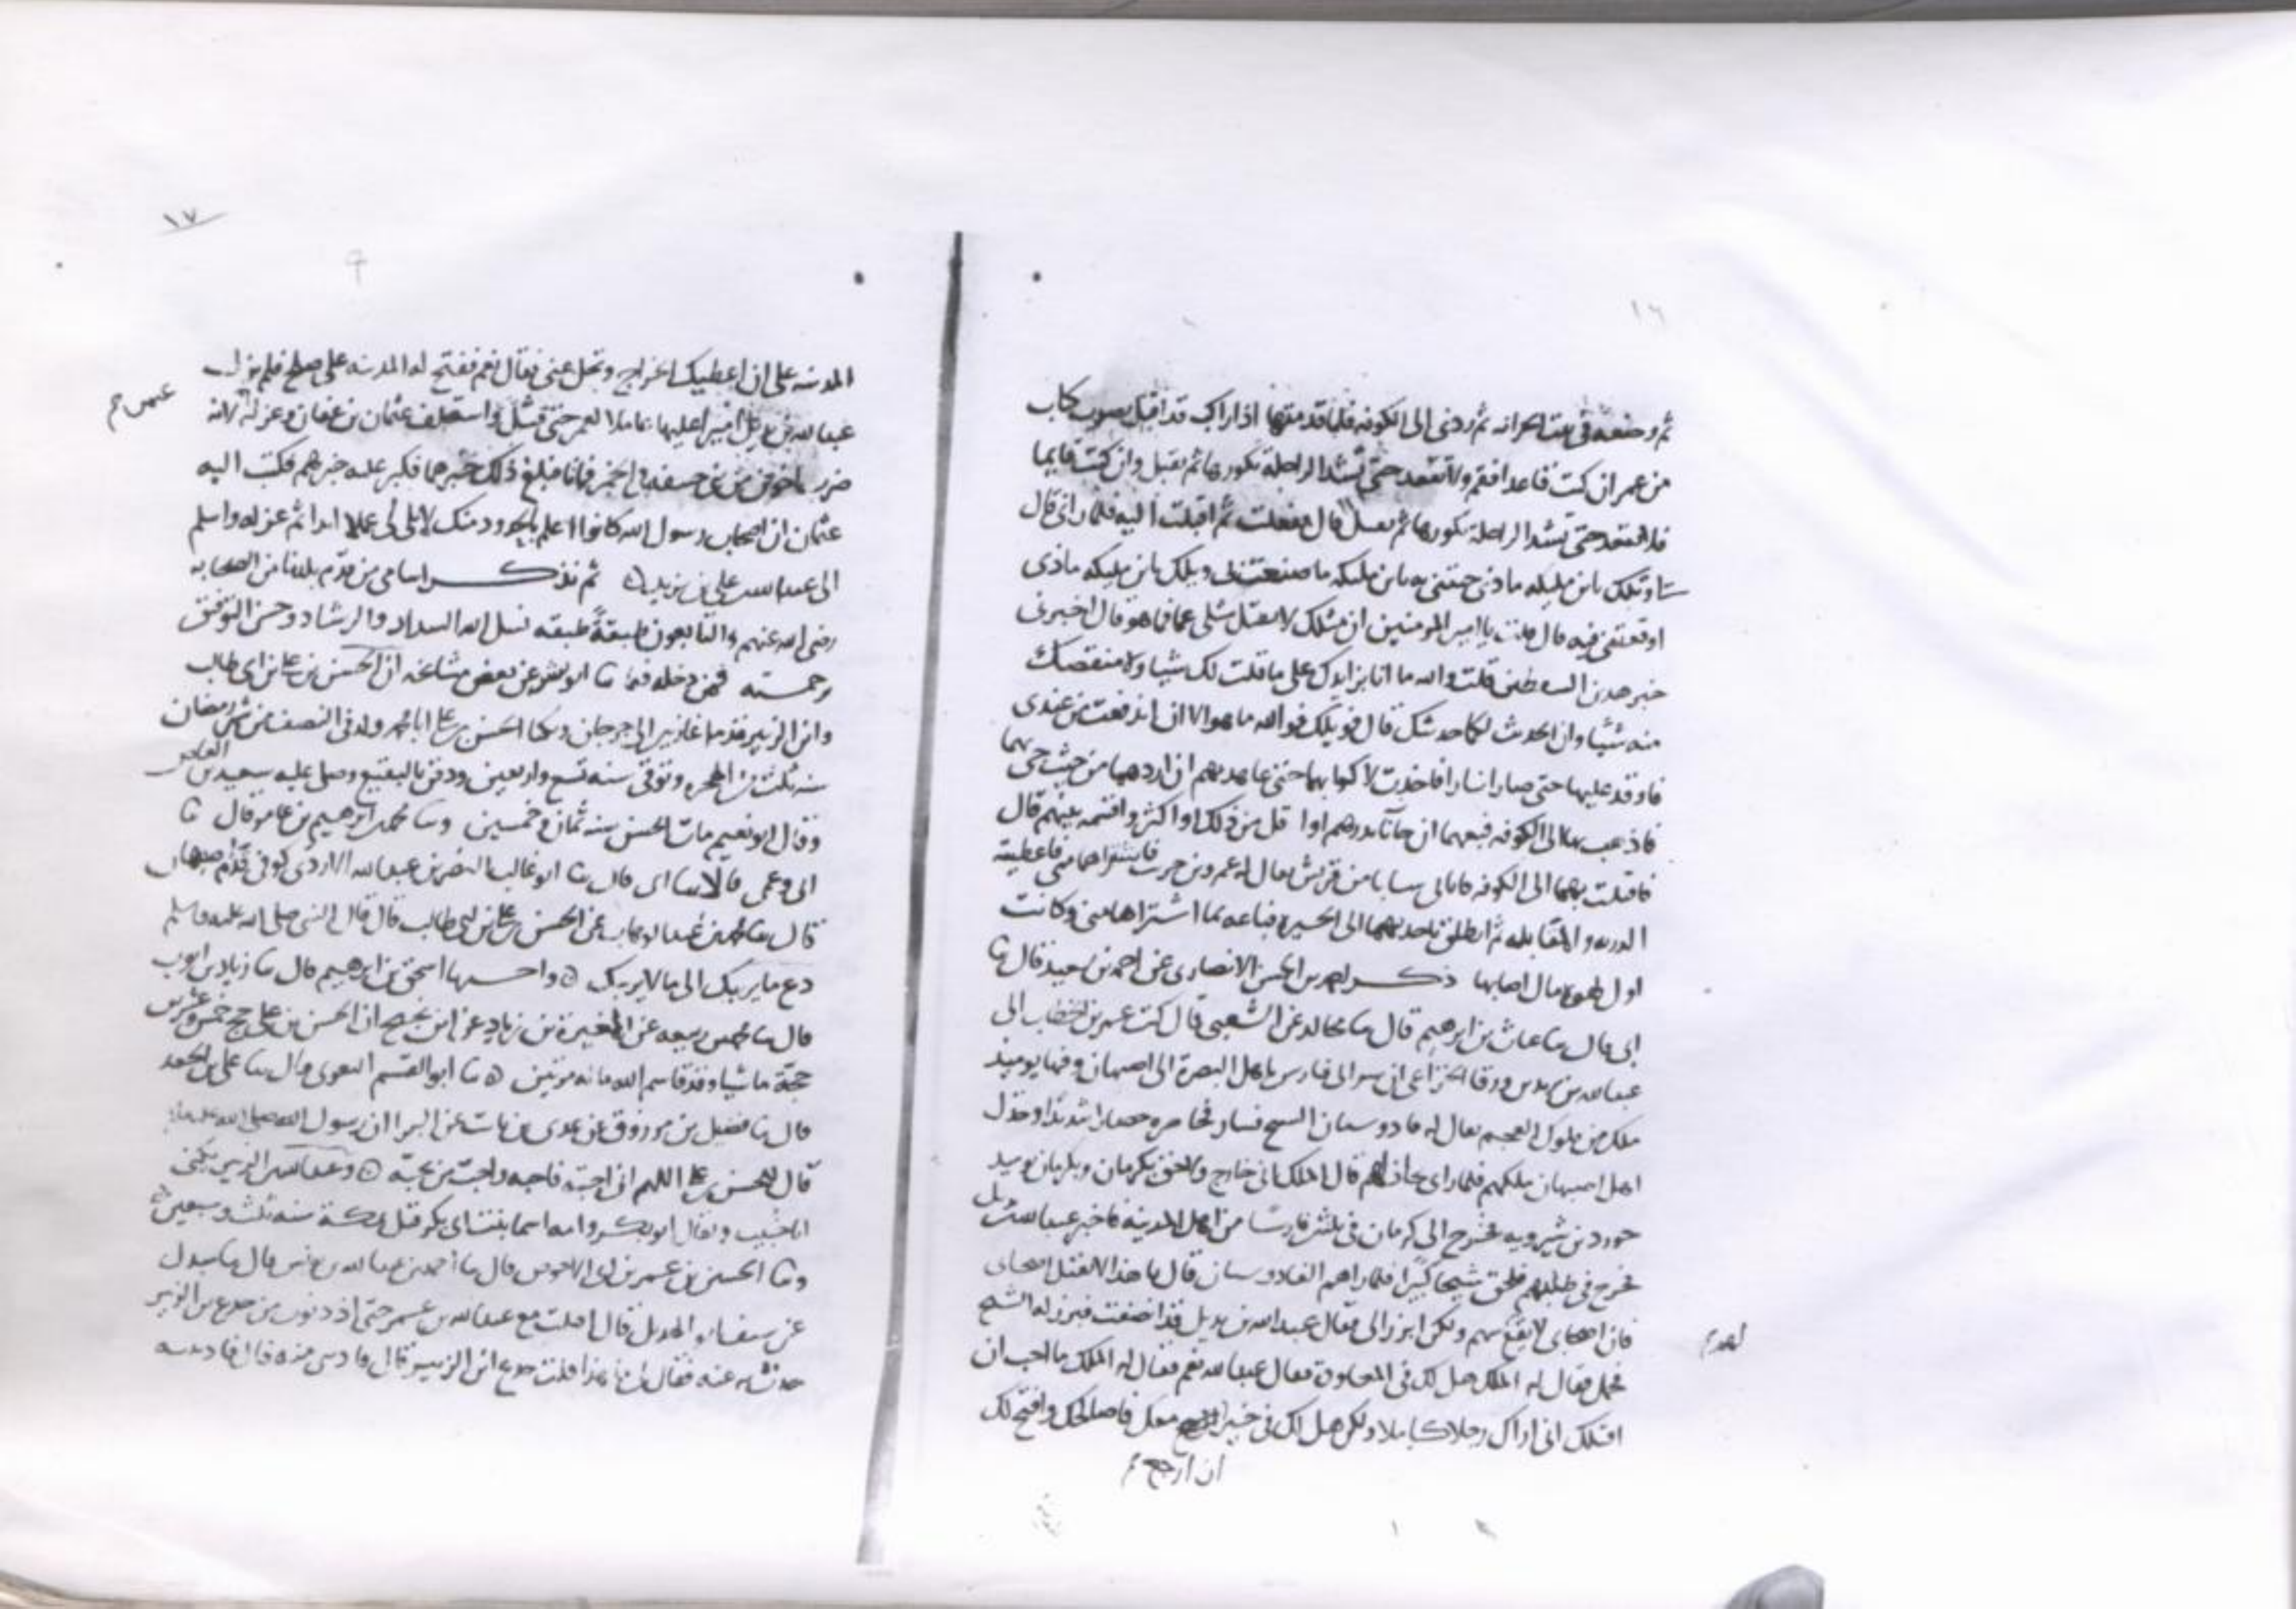 ١٦
ثم وضعه في بيت الخزانه ثم ردني الى الكوفه فلما قدمتها اذا راكب قد اقبل بصوب كتاب
من عمر ان كنت قاعدا فقم ولا تقعد حتى تشد الراحله بكورها ثم تقبل وان كنت قايما
فلا تقعد حتى تشد الراحله بكورها ثم تقبل قال ففعلت ثم اقبلت اليه فلما راني قال
ويلك يابن مليكه ماذى جئتني به يابن مليكه ما صنعت بي ويلك يابن مليكه ماذى
اوقعتني فيه قال قلت يا امير المومنين ان مثلك لا يقتل مثلي عما فما هو قال اخبرني
خبر هذين السفطين قلت والله ما انا بزايدك على ما قلت لك شيا ولا منقصك
منه شيا وان الحدث لكما حدثتك قال فويلك فوالله ما هو الا ان اندفعت من عندى
فاوقد عليها حتى صارا نارا فاخذت لاكوا بهما حتى عاهدتهم ان اردهما من حيث جى بهما
فاذهب بهما الى الكوفه فبعهما ان جاآ بدرهم او اقل من ذلك او اكثر واقسمه بينهم قال
فاقبلت بهما الى الكوفه فاتاني شاب من قريش يقال له عمرو بن حريث فاشتراهما مني فاعطيته
الذريه و المقاتله ثم انطلق باحدهما الى الحيره فباعه بما اشتراهما مني وكانت
اول مال اصابها ذكر احمد بن الحسن الانصارى عن احمد بن سعيد قال ثنا
ابي قال ثنا غياث بن ابرهيم قال ثنا مجالد عن الشعبي قال كتب عمر بن الخطاب الى
عبد الله بن بديل بن ورقا الخزاعى ان سر الى فارس باهل البصرة الى اصبهان وفيها يوميذ
ملك من ملوك العجم يقال له فادوسبان السيخ فسار فحاصره حصارا شديدا وخذل
اهل اصبهان ملكهم فلما راى خذلانهم قال الملك اني خارج ولاحق بكرمان وبكرمان يوميذ
يزدجرد بن شيرويه فخرج الى كرمان في ثلثين فارسا من اهل المدينه فاخبر عبد الله بن بديل
فخرج في طلبهم فلحق شيخا كبيرا فلما راهم الفادوسبان قال يا هذا لا تقتل اصحابى
فان اصحابى لا يقع سهم ولكن ابرز الى فقال عبد الله بن بديل قد انصفت فبرز له الشيخ
لهم
فحمل فقال له الملك هل لك في المعاودة فقال عبد الله نعم فقال له الملك ما احب ان
اقتلك اني اراك رجلا كاملا ولكن هل لك في خير ارجع معك فاصالحك وافتح لك
ان ارجع م
١٧
المدينه على ان اعطيك الخراج وتخل عني فقال نعم ففتح له المدينه على صلح فلم يزل
عبد الله بن بديل اميرا عليها عاملا لعمر حتى قتل واستخلف عثمان بن عفان وعزله لانه
عمر م
ضرب فماتا فبلغ ذلك خبرهما فكبر عليه خبرهم فكتب اليه
عثمان ان اصحاب رسول الله كانوا اعلم بالحدود منك لا تلى لى عملا ابدا ثم عزله واسلم
الى عبد الله بن يزيد ثم نذكر اسامي من قدم بلدنا من الصحابه
رضى الله عنهم والتابعون طبقة طبقه نسل الله السداد والرشاد وحسن التوفيق
برحمته فممن دخله فيما ثنا ابو بشر عن بعض مشايخه ان الحسن بن على بن ابى طالب
وابن الزبير قدما غازيين الى جرجان ويكنا الحسن بن على ابا محمد ولد في النصف من شهر رمضان
سنه ثلث من الهجره وتوفى سنه تسع واربعين ودفن بالبقيع وصلى عليه سعيد بن العاص
وقال ابو نعيم مات الحسن سنه ثمان وخمسين وثنا محمد بن ابرهيم بن عامر قال ثنا
ابى وعمى قالا ثنا ابى قال ثنا ابو غالب النضر بن عبد الله الازدى كوفى قدم اصبهان
قال ثنا محمد بن عبد الوهاب عن الحسن بن على بن ابى طالب قال قال النبى صلى الله عليه وسلم
دع ما يريبك الى ما لا يريبك واحسبها اسحق بن ابرهيم قال ثنا زياد بن ايوب
قال ثنا محمد بن ربيعه عن المغيرة بن زياد عن ابن نجيح ان الحسن بن على حج خمس وعشرين
حجة ماشيا وقد قاسم الله ماله مرتين ثنا ابو القسم البغوى قال ثنا على بن الجعد
قال ثنا فضيل بن مرزوق عن عدى بن ثابت عن البرا ان رسول الله صلى الله عليه
قال للحسن بن على اللهم انى احبه فاحبه واحب من يحبه وعبد الله بن الزبير يكنى
ابا خبيب ويقال ابو بكر وامه اسما بنت ابى بكر قتل بمكة سنه ثلث وسبعين
وثنا الحسن بن عمر بن ابى الاحوص قال ثنا احمد بن عبد الله بن يونس قال ثنا مندل
عن سيف ابو الهذيل قال اقبلت مع عبد الله بن عمر حتى اذ دنونا من جذع بن الزبير
حدثنا به عنه فقال ما هذا قلت جذع ابن الزبير قال فادنى منه قال فادنيته